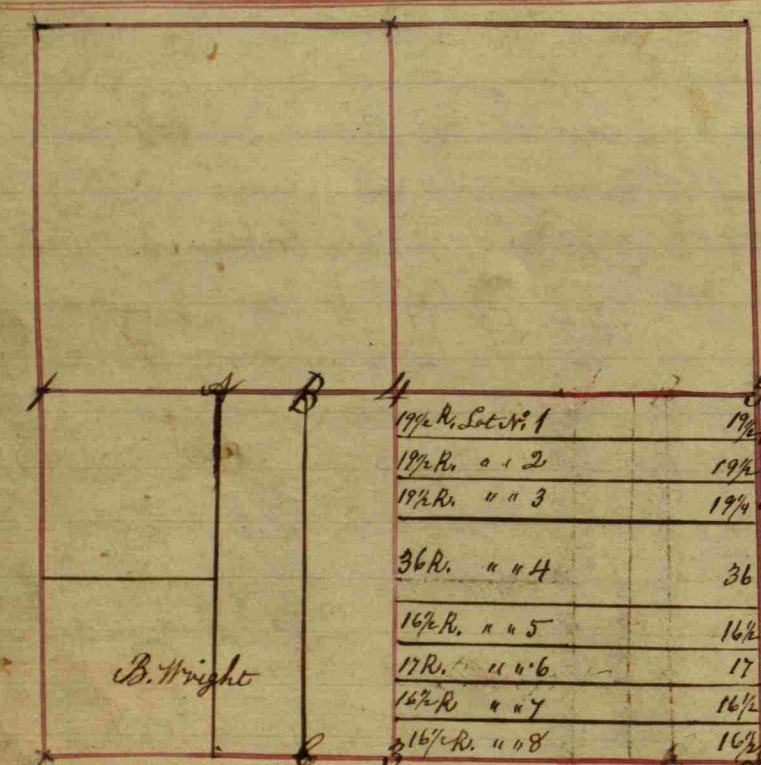 1 A B 4 5
19½ R. Lot No. 1 19½
19½ R. " " 2 19½
19½ R. " " 3 19¼
36 R. " " 4 36
16½ R. " " 5 16½
17 R. " " 6 17
16½ R " " 7 16½
16½ R. " " 8 16½
B. Wright
C 3 2